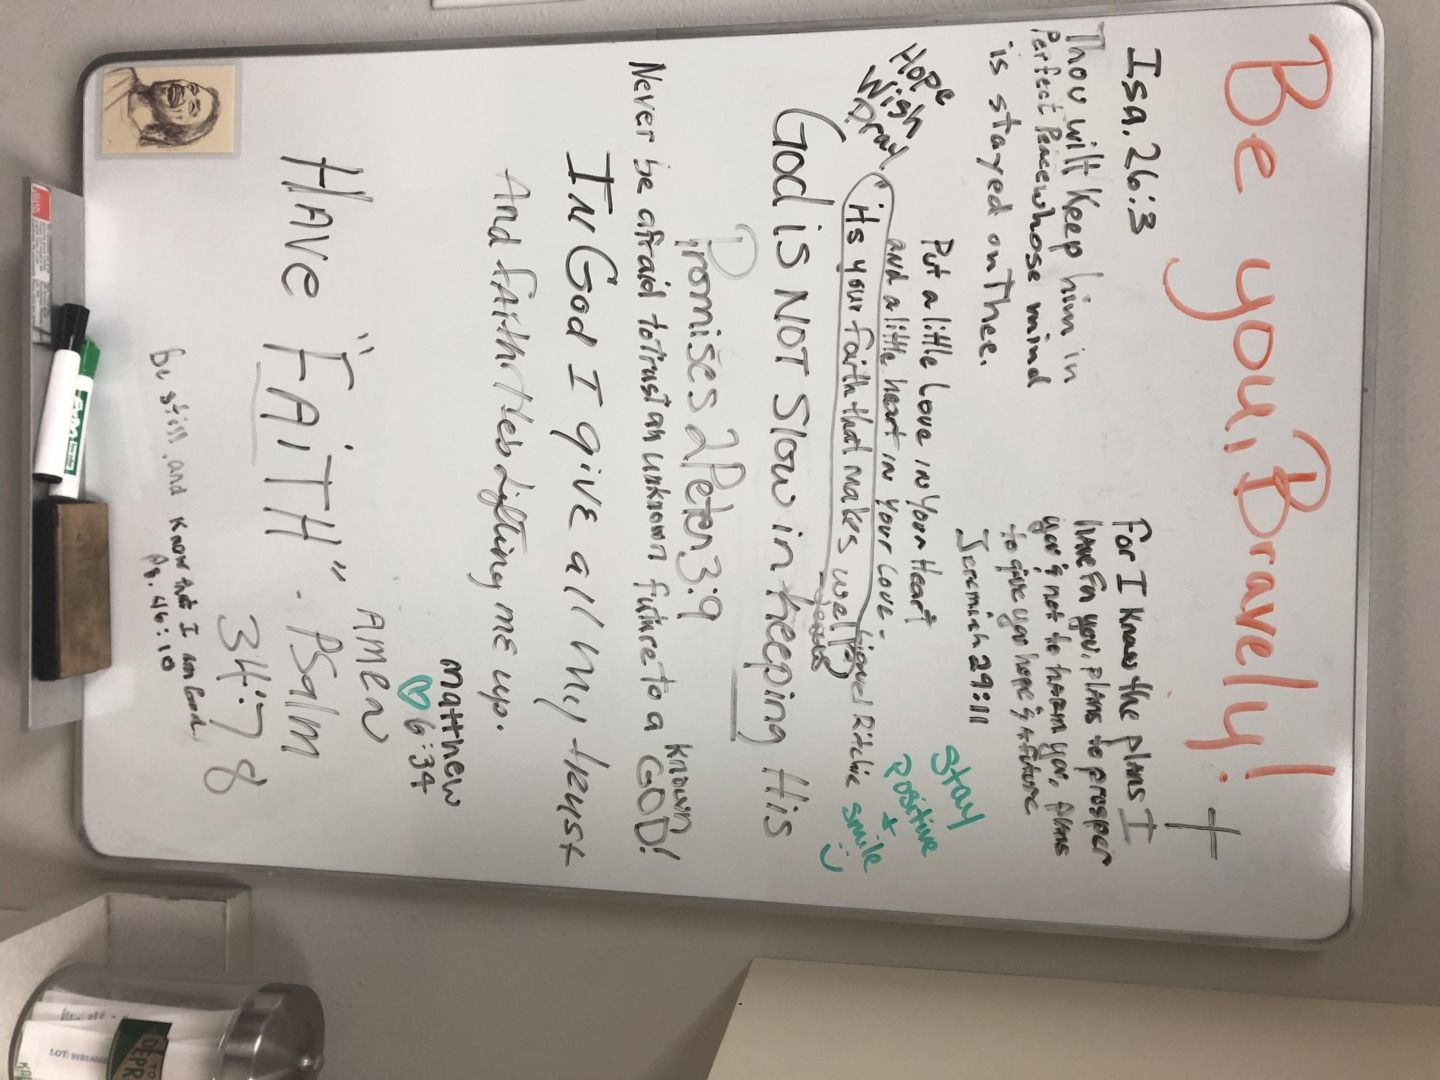 Be you, Bravely!
Isa. 26:3
Thou wilt Keep him in
Perfect Peace whose mind
is stayed on Thee.
For I Know the plans I
have for you, plans to prosper
you & not to harm you, plans
to give you hope & a future
Jeremiah 29:11
Hope
Wish
Pray
Put a little Love in Your Heart
and a little heart in your Love.
its your faith that makes well
Jesus
Lionel Ritchie
Stay
Positive
+
smile
God is NOT Slow in Keeping His
Promises 2 Peter 3:9
Never be afraid to Trust an unknown future to a known GOD!
IN GOD I give all my trust
And fAith
Lifting me up.
Matthew
6:34
HAVE "FAiTH". PSalm
34:7 8
AMEN
be still, and know that I am God.
Ps. 46:10
EXPO
LOT:
TO
DEPR